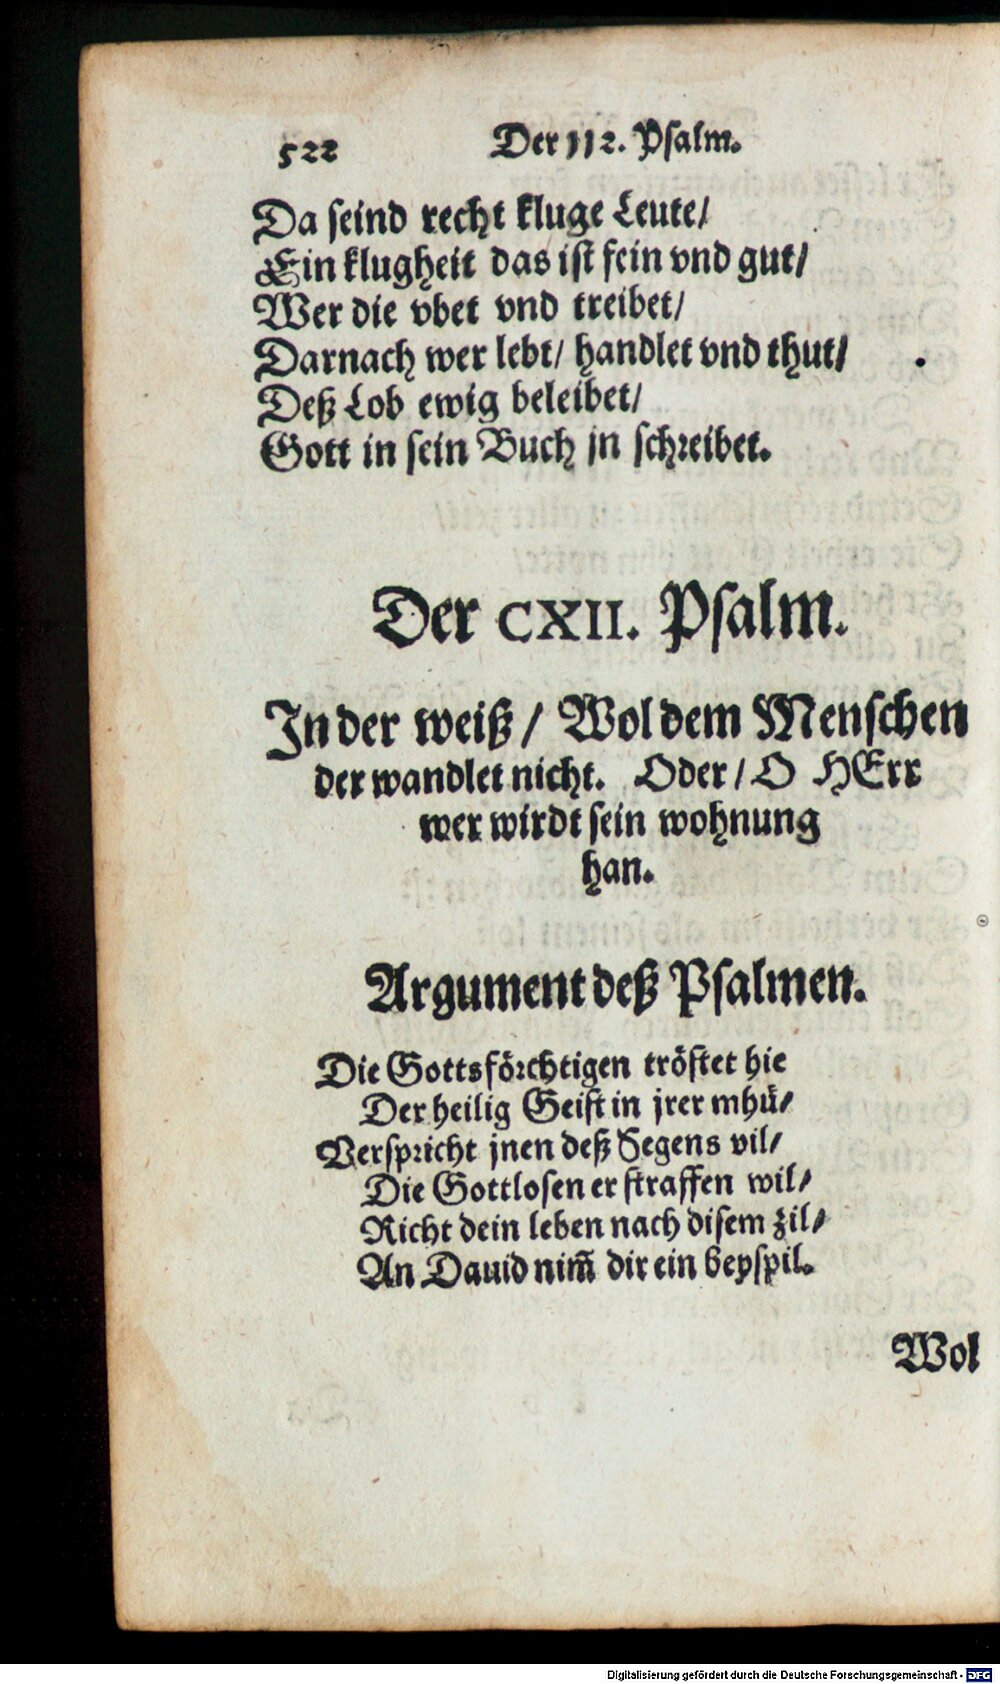 522 Der 112. Psalm.
Da seind recht kluge Leute/
Ein klugheit das ist fein vnd gut/
Wer die vbet vnd treibet/
Darnach wer lebt/ handlet vnd thut/
Deß Lob ewig beleibet/
Gott in sein Buch jn schreibet.
Der CXII. Psalm.
In der weiß/ Wol dem Menschen
der wandlet nicht. Oder/ O HErr
wer wirdt sein wohnung
han.
Argument deß Psalmen.
Die Gottsförchtigen tröstet hie
Der heilig Geist in jrer mhü/
Verspricht jnen deß Segens vil/
Die Gottlosen er straffen wil/
Richt dein leben nach disem zil/
An Dauid nim̃ dir ein beyspil.
Wol
Digitalisierung gefördert durch die Deutsche Forschungsgemeinschaft - DFG